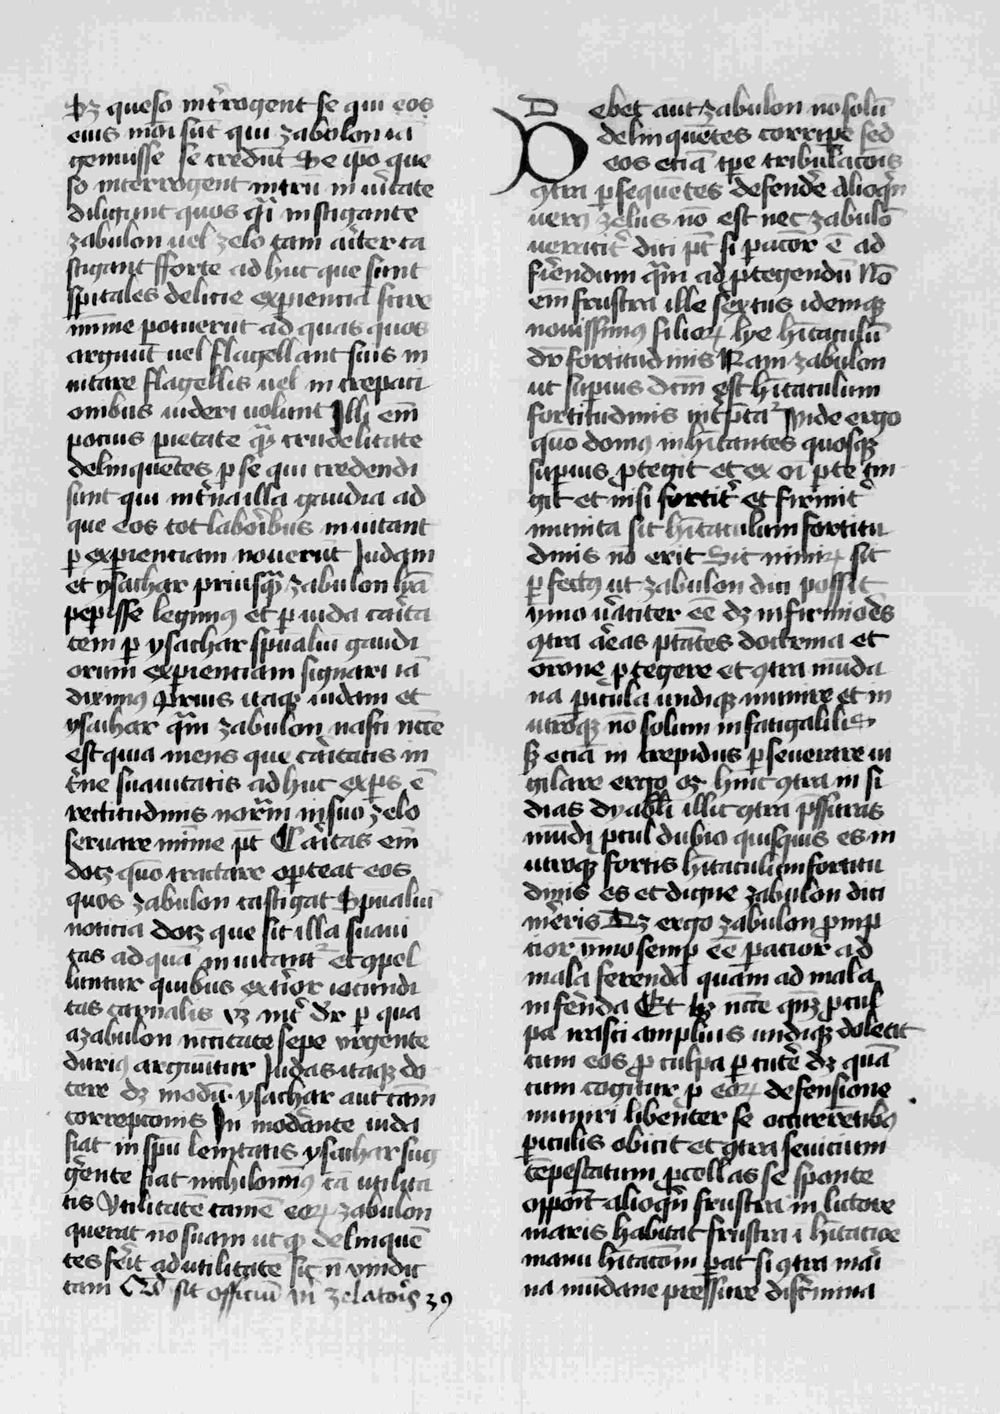 Sz queso int̄rogent se qui eos
eius mōi sūt qui zabulon iā
genuisse se credūt Se ip̄o que
so interrogent utrū in ūitate
diligunt quos q̄i instigante
zabulon uel zelo tam aīter ca
stigant fforte adhuc que sunt
spītales delicie experiencia scire
mīme potuerūt ad quas quos
arguūt uel flagellant suis in
uitare flagellis uel increpaci
onibus uideri uolunt Illi em̄
pocius pietate q̄ crudelitate
delinquētes p se qui credendi
sunt qui int̄na illa gaudia ad
que eos tot laborībus inuitant
p experienciam nouerūt Iudam
et ysachar priusq̄ zabulon lyā
peperisse legimus et p iuda carita
tem p ysachar spūaliū gaudi
orum experienciam signari iā
diximus Prius itaq; iudam et
ysachar q̄m zabulon nasci nēce
est quia mens que caritatis in
t̄ne suauitatis adhuc expers ē
rectitudinis normā in suo zelo
seruare mīme pt̄ Caritas em̄
docz quō tractare oporteat eos
quos zabulon castigat Spūaliū
noticia docz que sit illa suaui
tas ad quā inuitant̄ et ꝯpel
luntur quibus exterior iocundi
tas carnalis vz int̄ dr̄ p qua
a zabulon nccitate sepe vrgente
durius arguūtur Iudas itaq; do
cere dz modū· ysachar aut cām
correpcōnis In moderante iuda
fiat in spū lenitatis ysachar sug
gerente fiat nichilomiꝰ cā utilita
tis Vtilitatē tamē eoꝝ zabulon
querat nō suam ut q̄ delinquē
tes ferit ad utilitatē sit n̄ vindic
tam Qd̄ sit officiū ūi zelatoris 39
Debet aut zabulon nō solū
delinquētes corripe sed
eos etiā tpe tribulacōis
ꝯtra psequētes defendē Alioq̄n
uerus zelus nō est nec zabulō
ueraciē dici pt̄ si pacior ē ad
feriendum q̄m ad ptegendū Nō
em̄ frustra ille sextus idemq;
nouissimus filioꝝ lye hītaculū
dr̄ fortitudinis Nam zabulon
ut supius dcm̄ est hītaculum
fortitudinis int̄ptat̄ Inde ergo
quō domus inhītantes quosq;
supius ptegit et ex oī pte cin
git et nisi fortit̄ et firmit̄
munita sit hītaculum fortitu
dinis nō erit Sic nimiꝝ sit
pfectus ut zabulon dici possit
ymo ūaciter eē dz infirmiores
ꝯtra aēreas ptātes doctrina et
orōne ptegere et ꝯtra mūda
na picula undiq; munire et in
utroq; nō solum infatigabilis
sz eciā intrepidus pseuerare ui
gilare ergo oz hinc ꝯtra insi
dias dyaboli illic ꝯtra pssuras
mūdi pcul dubio quisquis es in
utroq; fortis hītaculum fortitu
dinis es et digne zabulon dici
meris Dz ergo zabulon pmp
cior ymo semp eē pacior ad
mala ferenda quam ad mala
inferenda Et lz nēce q̄nq; p cul
pa irasci amplius undiq; dolet
tum eos p culpa pcutē dz quā
tum cogitur p eoꝝ defensione
muniri libenter se occurrentibꝰ
piculis obicit et ꝯtra seuicium
tēpestatum pcellas se sponte
opponit alioq̄n frustra in littore
maris habitat frustra ī hītacōe
manu hītacōm pat si ꝯtra mari
na mūdane pressure discrimina